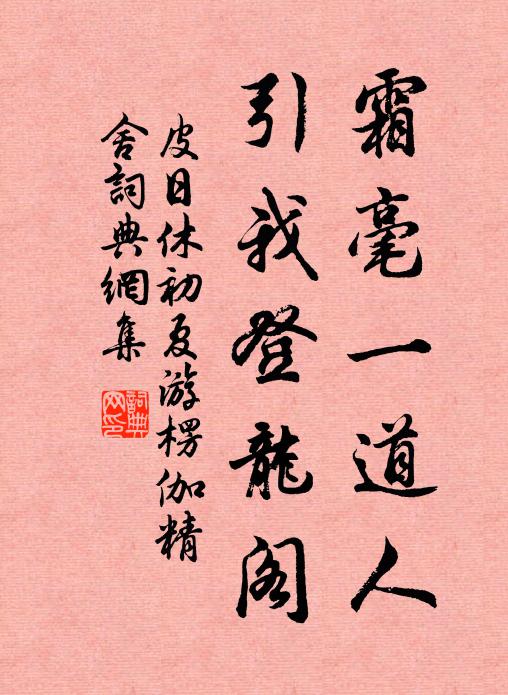 霜毫一道人
引我登龍阁
皮日休初夏游楞伽精
舍詞典網集
詞典
网印